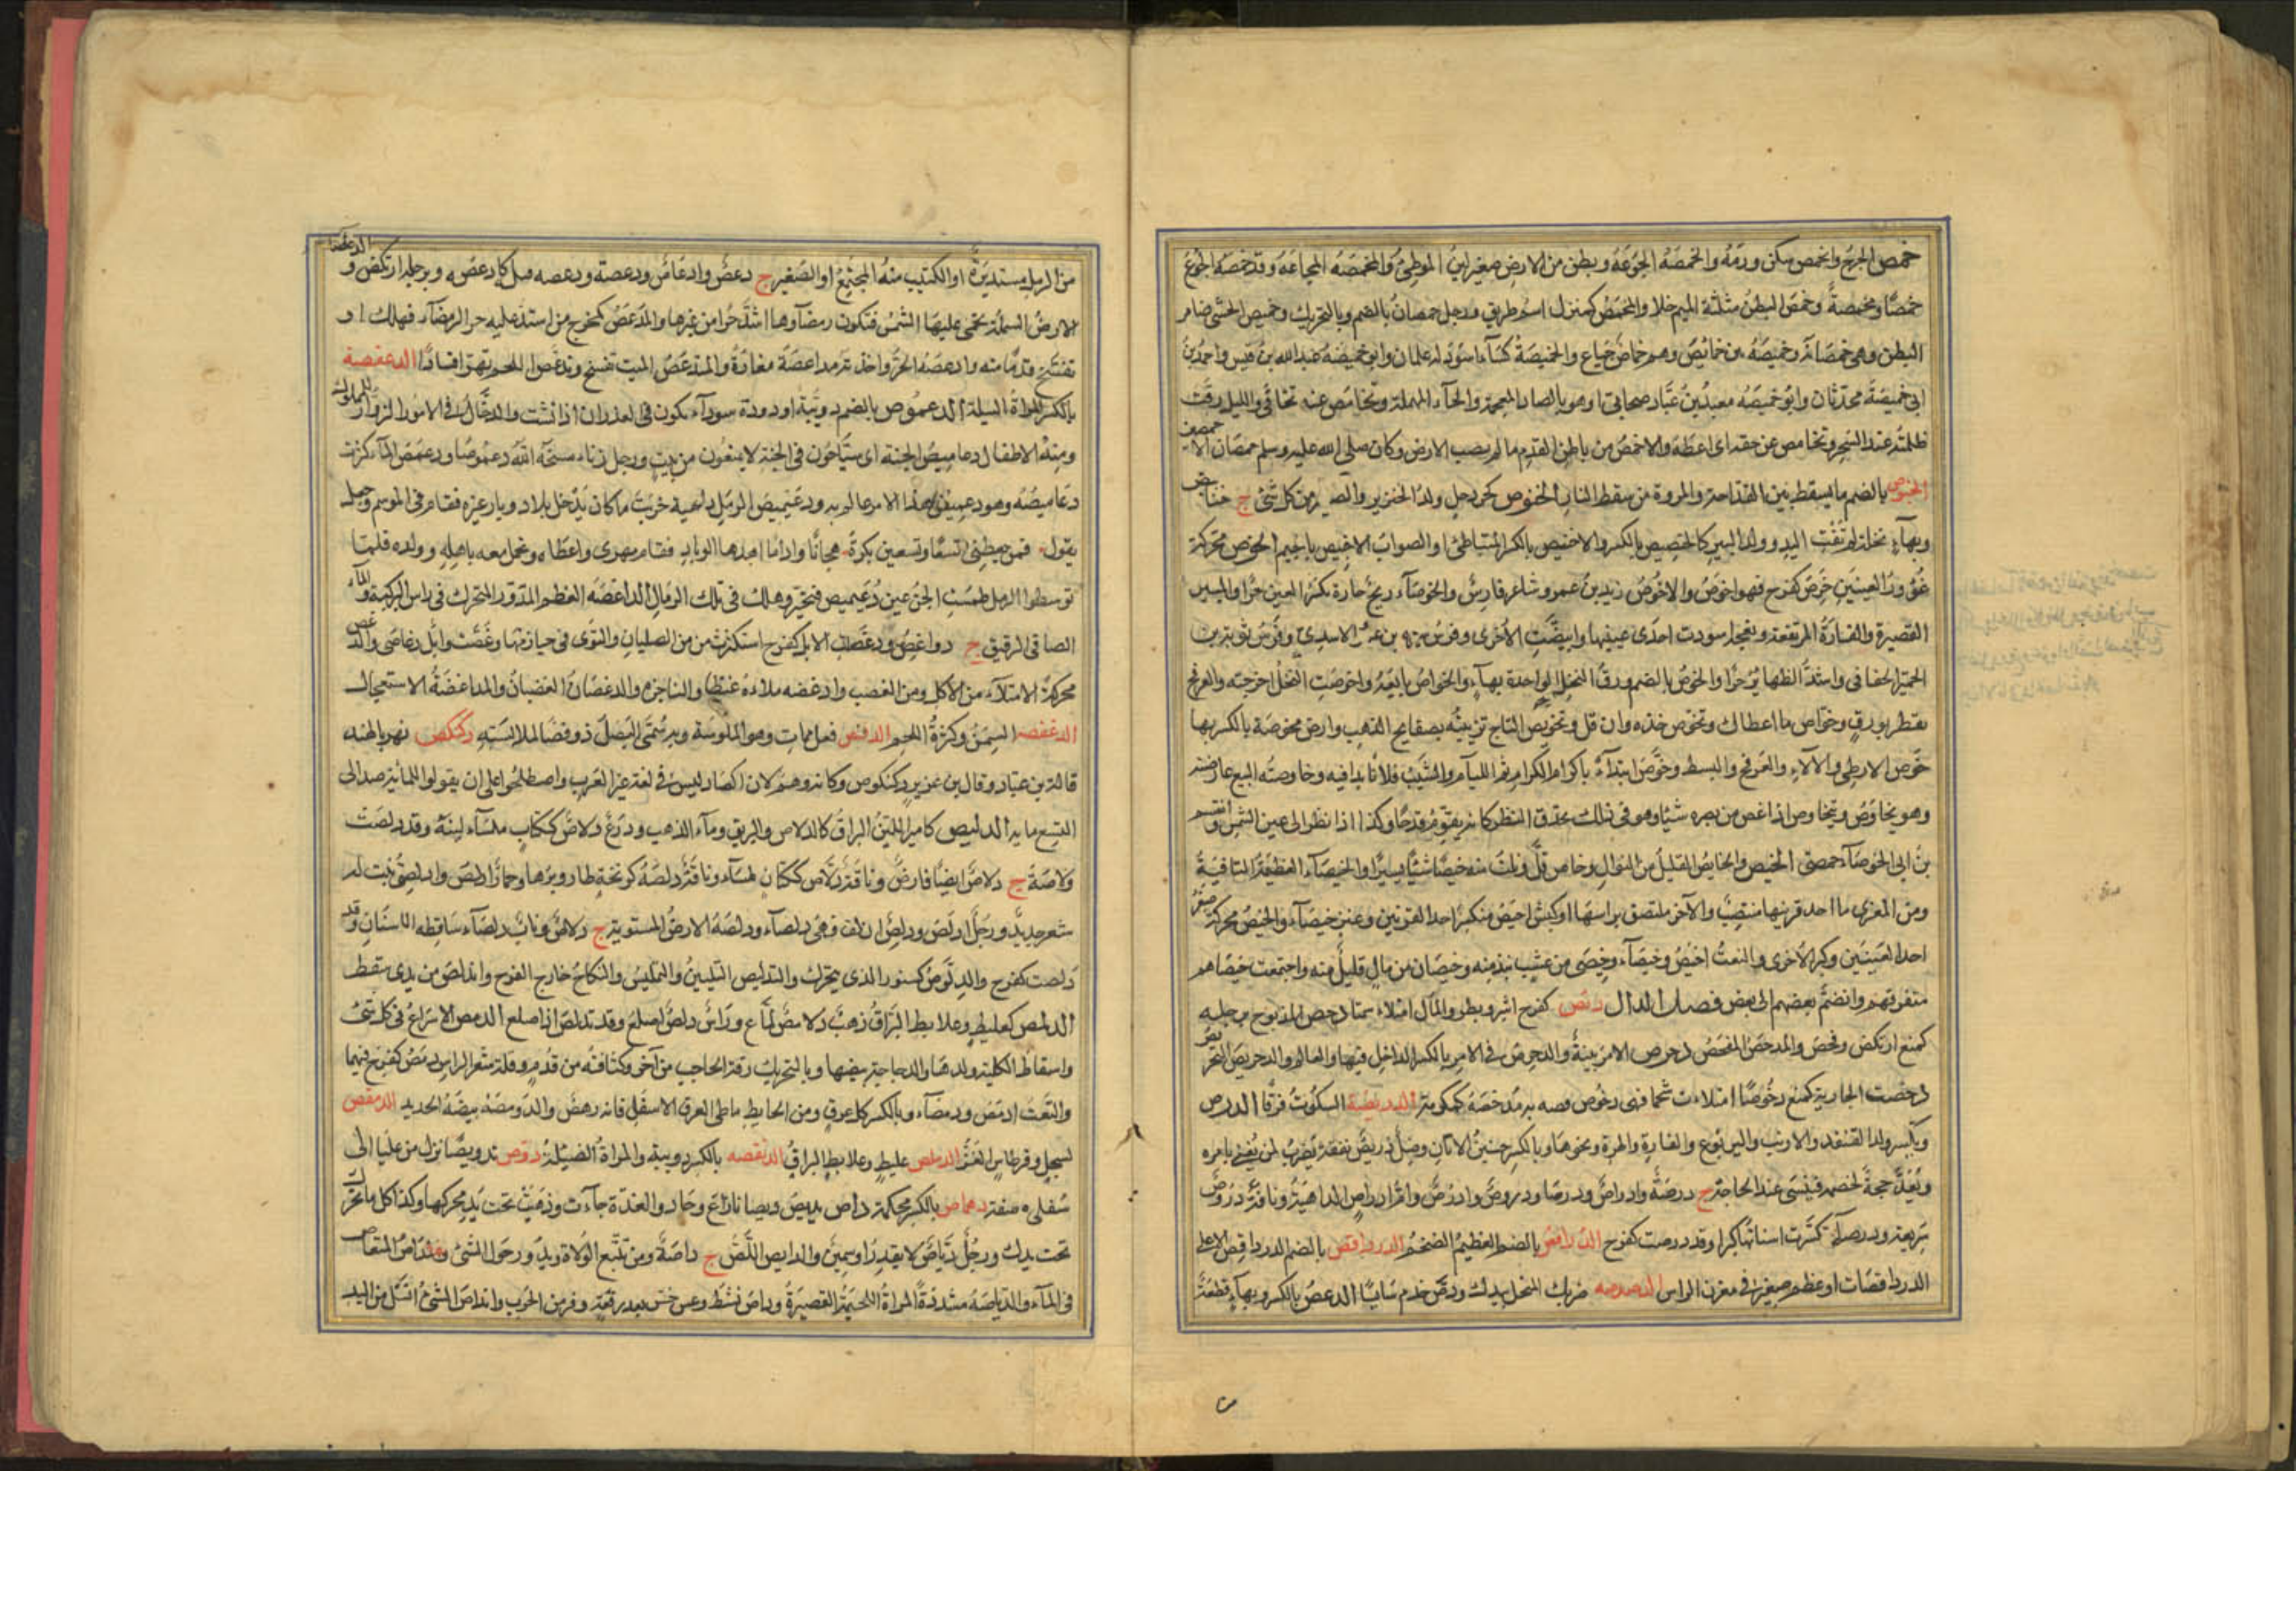 خمص الجرح وانخمص سكن ورمه والخمصة الجوعة وبطن من الارض صغير لين الموطئ والمخمصة المجاعة وقد خمصه الجوع
خمصا ومخمصة وخمص البطن مثلثة الميم خلا والمخمص كمنزل اسم طريق ورجل خمصان بالضم وبالتحريك وخميص الحشى ضامر
البطن وهى خمصانة وخميصة من خمائص وهم خماص جياع والخميصة كساء اسود له علمان وابو خميصة عبد الله بن قيس واحمد بن
ابى خميصة محدثان وابو خميصة معبد بن عباد صحابى او هو بالضاد المعجمة والحاء المهملة وتخامص عنه تجافى والليل رقت
ظلمته عند السحر وتخامص عن حقه اى اعطه والاخمص من باطن القدم ما لم يصب الارض وكان صلى الله عليه وسلم خمصان الاخمصين
الخنوص بالضم ما يسقط بين القداحة والمروة من سقط النار الخنوص كجردحل ولد الخنزير والصغير من كل شئ ج خنانيص
وبهاء نخلة لم تفت اليد وولد الببر كالخنصيص بالكسر والاخنيص بالكسر المتباطئ او الصواب الاجنيص بالجيم الخوص محركة
غؤور العينين خوص كفرح فهو اخوص والاخوص زيد بن عمرو شاعر فارس والخوصاء ريح حارة تكسر العين حرا والبئر
القصيرة والقارة المرتفعة ونعجة اسودت احدى عينيها وابيضت الاخرى وفرس سبرة بن عمرو الاسدى وفرس توبة بن
الحمير الخفاجى واشد الظهائر حرا والخوص بالضم ورق النخل الواحدة بهاء والخواص بائعه واخوصت النخل اخرجته والعرفج
تفطر بورق وخواص ما اعطاك وتخوص خذه وان قل وتخويص التاج تزيينه بصفائح الذهب وارض مخوصة بالكسر بها
خوص الارطى والالاء والعرفج والسبط وخوص ابتداء باكرام الكرام ثم اللئام والشيب فلانا بدا فيه وخاوصته البيع عارضته
وهو يخاوص ويتخاوص اذا غض من بصره شيئا وهو فى ذلك يحدق النظر كانه يقوم قدحا وكذا اذا نظر الى عين الشمس وقسيم
بن ابى الخوصاء حمصى الخيص والخائص القليل من النوال وخاص قل ونلت منه خيصا شيئا يسيرا والخيصاء العطية التافهة
ومن المعزى ما احد قرنيها منتصب والاخر ملتصق براسها او كبش اخيص منكسر احد القرنين وعنز خيصاء والخيص محركة صغر
احدى العينين وكبر الاخرى والنعت اخيص وخيصاء وخيصى من عشب نبذ منه وخيصان من مال قليل منه واجتمعت خيصاهم
متفرقهم وانضم بعضهم الى بعض فصل الدال دئص كفرح اشر وبطر والمال امتلاء سمنا دحص المذبوح برجليه
كمنع ارتكض وفحص والمدحص المفحص دخرص الامر بينه والدخرص فى الامر بالكسر الداخل فيها والعالم والدخريص النخريص
دخصت الجارية كمنع دخوصا امتلاءت شحما فهى دخوص وصبية مدخصة كمكرمة الدربصة السكوت فرقا الدرص
ويكسر ولد القنفذ والارنب واليربوع والفارة والهرة ونحوها وبالكسر جنين الاتان وضل دريص نفقه يضرب لمن يعنى بامره
ويعد حجة لخصمه فينسى عند الحاجة ج درصة وادراص ودرصان ودروص وادرص وام ادراص الداهية وناقة دروص
سريعة ودرصاء تكسرت اسنانها كبرا وقد درصت كفرح الدرافص بالضم العظيم الضخم الدرداقص بالضم الدرداقيص الاعلى
الدرداقصات او عظم صغير فى مغرز الراس الدصدصة ضربك المنخل بيدك ودص خدم سائسا الدعص بالكسر وبهاء قطعة
الدعصاء
من الرمل مستديرة او الكثيب منه المجتمع او الصغير ج دعص وادعاص ودعصة ودعصه قتله كادعصه وبرجله ارتكض و
الارض السهلة تحمى عليها الشمس فتكون رمضاؤها اشد حرا من غيرها والمدعص كمخرج من اشتد عليه حر الرمضاء فهلك او
تفسخ قدماه منه وادعصه الحر واخذته مداعصة معازة والمتدعص الميت تفسخ وتدعص اللحم تهرا فسادا الدعفصة
بالكسر المراة الضئيلة الدعموص بالضم دويبة او دودة سوداء تكون فى الغدران اذا نشت والدخال فى الامور الزوار للملوك
ومنه الاطفال دعاميص الجنة اى سياحون فى الجنة لا يمنعون من بيت ورجل زناء مسخه الله دعموصا ودعمص الماء كثرت
دعاميصه وهو دعيميص هذا الامر عالم به ودعيميص الرمل داهية خريت ما كان يدخل بلاد وبار غيره فقام فى الموسم وجعل
يقول فمن يعطنى تسعا وتسعين بكرة هجانا وادما اهدها لوبار فقام مهرى واعطاه وتحمل معه باهله وولده فلما
توسطوا الرمل طمست الجن عين دعيميص فتحير وهلك فى تلك الرمال الداغصة العظم المدور المتحرك فى راس الركبة والماء
الصافى الرقيق ج دواغص ودغصت الابل كفرح استكثرت من الصليان والتوى فى حيازمها وغصت وابل دغاصى والدغص
محركة الامتلاء من الاكل ومن الغضب وادغصه ملاءه غيظا وناجزه والدغصان الغضبان والمداغصة الاستعجال
الدغفصة السمن وكثرة اللحم الدفص فعل ممات وهو الملوسة وبه سمى البصل ذوفصا لملاسته دكنكص نهر بالهند
قاله بن عباد وقال بن عزيز دكنكوص وكانه وهم لان الصاد ليس فى لغة غير العرب واصطلحوا على ان يقولوا للمائة صد الى
التسعمائة الدليص كامير اللين البراق كالدلاص والبريق وماء الذهب ودرع دلاص ككتاب ملساء لينة وقد دلصت
دلاصة ج دلاص ايضا فارض وناقة دلاص ككتاب ملساء وناقة دلصة كزنخة طار وبرها وحمار ادلص وادلصى نبت له
شعر جديد ورجل ادلص ودلص ازلق وهى دلصاء ودلصة الارض المستوية ج دلاص وناب دلصاء ساقطه الاسنان وقد
دلصت كفرح والدلوص كسنور الذى يتحرك والتدليص التليين والتمليس والنكاح خارج الفرج واندلص من يدى سقط
الدلمص كعليط وعلابط البراق ذهب دلامص لماع وراس دلص اصلع وقد تدلص اذا صلع الدمص الاسراع فى كل شئ
واسقاط الكلبة ولدها والدجاجة بيضها وبالتحريك رقة الحاجب من اخر وكثافته من قدم وقلة شعر الراس دمص كفرح فيهما
والنعت ادمص ودمصاء وبالكسر كل عرق ومن الحايط ما طى العرق الاسفل فانه رهص والدومصة بيضة الحديد الدمقص
كسجل وقرطاس القز الدملص كعليط وعلابط البراق الدنقصة بالكسر دويبة والمراة الضئيلة دوص تدويصا نزل من عليا الى
سفلى دهماص بالكسر محكمة داص يديص ديصا نازاغ وحاد والغدة جاءت وذهبت تحت يد محركها وكذا كل ما تحرك
تحت يدك ورجل دياص لا يقدر او سمين والدايص اللص ج داصة ومن تتبع الولاة ويدور حول الشئ
فى الماء والدياصة مشددة المراة اللحيمة القصيرة وداص نشط وعس خس بعد رفعة وفر من الحرب واندلص الشئ انسل من اليد